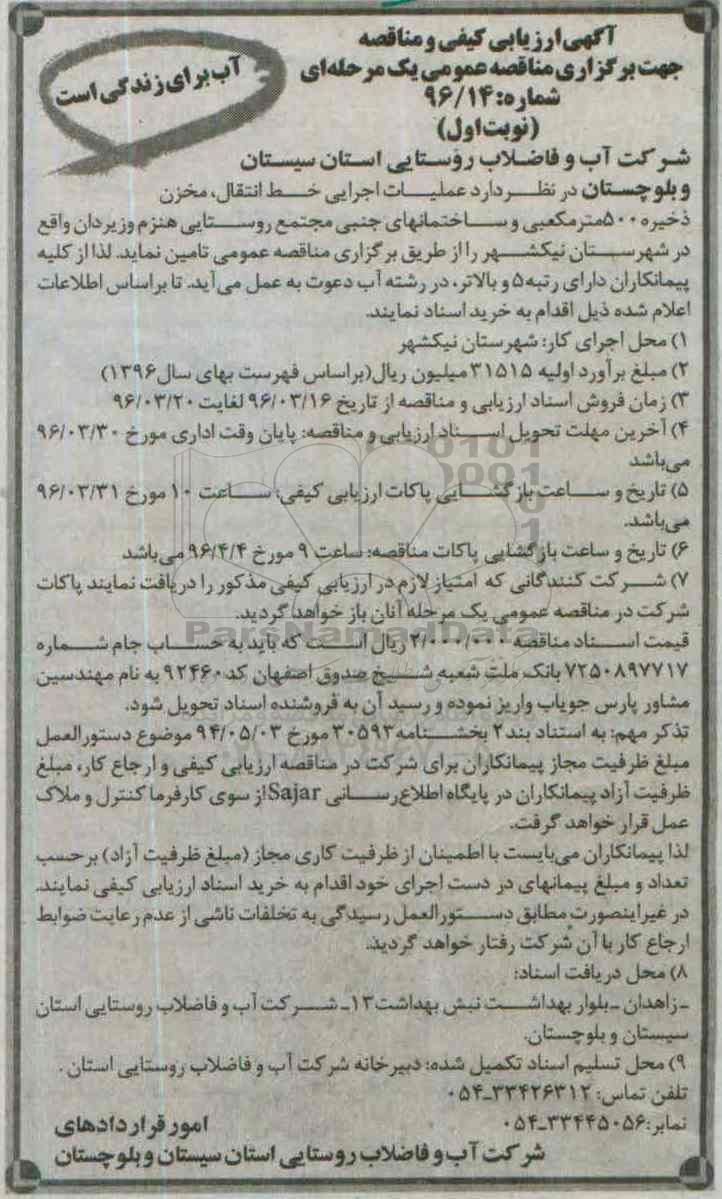 آگهی ارزیابی کیفی و مناقصه
جهت برگزاری مناقصه عمومی یک مرحله‌ای
شماره: ۹۶/۱۴
(نوبت اول)
آب برای زندگی است
شرکت آب و فاضلاب روستایی استان سیستان
و بلوچستان در نظر دارد عملیات اجرایی خط انتقال، مخزن
ذخیره ۵۰۰ مترمکعبی و ساختمانهای جنبی مجتمع روستایی هنزم وزیردان واقع
در شهرستان نیکشهر را از طریق برگزاری مناقصه عمومی تامین نماید. لذا از کلیه
پیمانکاران دارای رتبه ۵ و بالاتر، در رشته آب دعوت به عمل می‌آید. تا براساس اطلاعات
اعلام شده ذیل اقدام به خرید اسناد نمایند.
۱) محل اجرای کار: شهرستان نیکشهر
۲) مبلغ برآورد اولیه ۳۱۵۱۵ میلیون ریال (براساس فهرست بهای سال ۱۳۹۶)
۳) زمان فروش اسناد ارزیابی و مناقصه از تاریخ ۹۶/۰۳/۱۶ لغایت ۹۶/۰۳/۲۰
۴) آخرین مهلت تحویل اسناد ارزیابی و مناقصه: پایان وقت اداری مورخ ۹۶/۰۳/۳۰
می‌باشد
۵) تاریخ و ساعت بازگشایی پاکات ارزیابی کیفی: ساعت ۱۰ مورخ ۹۶/۰۳/۳۱
می‌باشد.
۶) تاریخ و ساعت بازگشایی پاکات مناقصه: ساعت ۹ مورخ ۹۶/۴/۴ می‌باشد
۷) شرکت کنندگانی که امتیاز لازم در ارزیابی کیفی مذکور را دریافت نمایند پاکات
شرکت در مناقصه عمومی یک مرحله آنان باز خواهد گردید.
ParsNamadData
قیمت اسناد مناقصه ۲/۰۰۰/۰۰۰ ریال است که باید به حساب جام شماره
۷۲۵۰۸۹۷۷۱۷ بانک ملت شعبه شیخ صدوق اصفهان کد ۹۲۴۶۰ به نام مهندسین
مشاور پارس جویاب واریز نموده و رسید آن به فروشنده اسناد تحویل شود.
تذکر مهم: به استناد بند ۲ بخشنامه ۳۰۵۹۳ مورخ ۹۴/۰۵/۰۳ موضوع دستورالعمل
مبلغ ظرفیت مجاز پیمانکاران برای شرکت در مناقصه ارزیابی کیفی و ارجاع کار، مبلغ
ظرفیت آزاد پیمانکاران در پایگاه اطلاع‌رسانی Sajar از سوی کارفرما کنترل و ملاک
عمل قرار خواهد گرفت.
لذا پیمانکاران می‌بایست با اطمینان از ظرفیت کاری مجاز (مبلغ ظرفیت آزاد) برحسب
تعداد و مبلغ پیمانهای در دست اجرای خود اقدام به خرید اسناد ارزیابی کیفی نمایند.
در غیر اینصورت مطابق دستورالعمل رسیدگی به تخلفات ناشی از عدم رعایت ضوابط
ارجاع کار با آن شرکت رفتار خواهد گردید.
۸) محل دریافت اسناد:
ـ زاهدان ـ بلوار بهداشت نبش بهداشت ۱۳ـ شرکت آب و فاضلاب روستایی استان
سیستان و بلوچستان.
۹) محل تسلیم اسناد تکمیل شده: دبیرخانه شرکت آب و فاضلاب روستایی استان.
تلفن تماس: ۳۳۴۲۶۳۱۲-۰۵۴
نمابر: ۳۳۴۴۵۰۵۶-۰۵۴
امور قراردادهای
شرکت آب و فاضلاب روستایی استان سیستان و بلوچستان